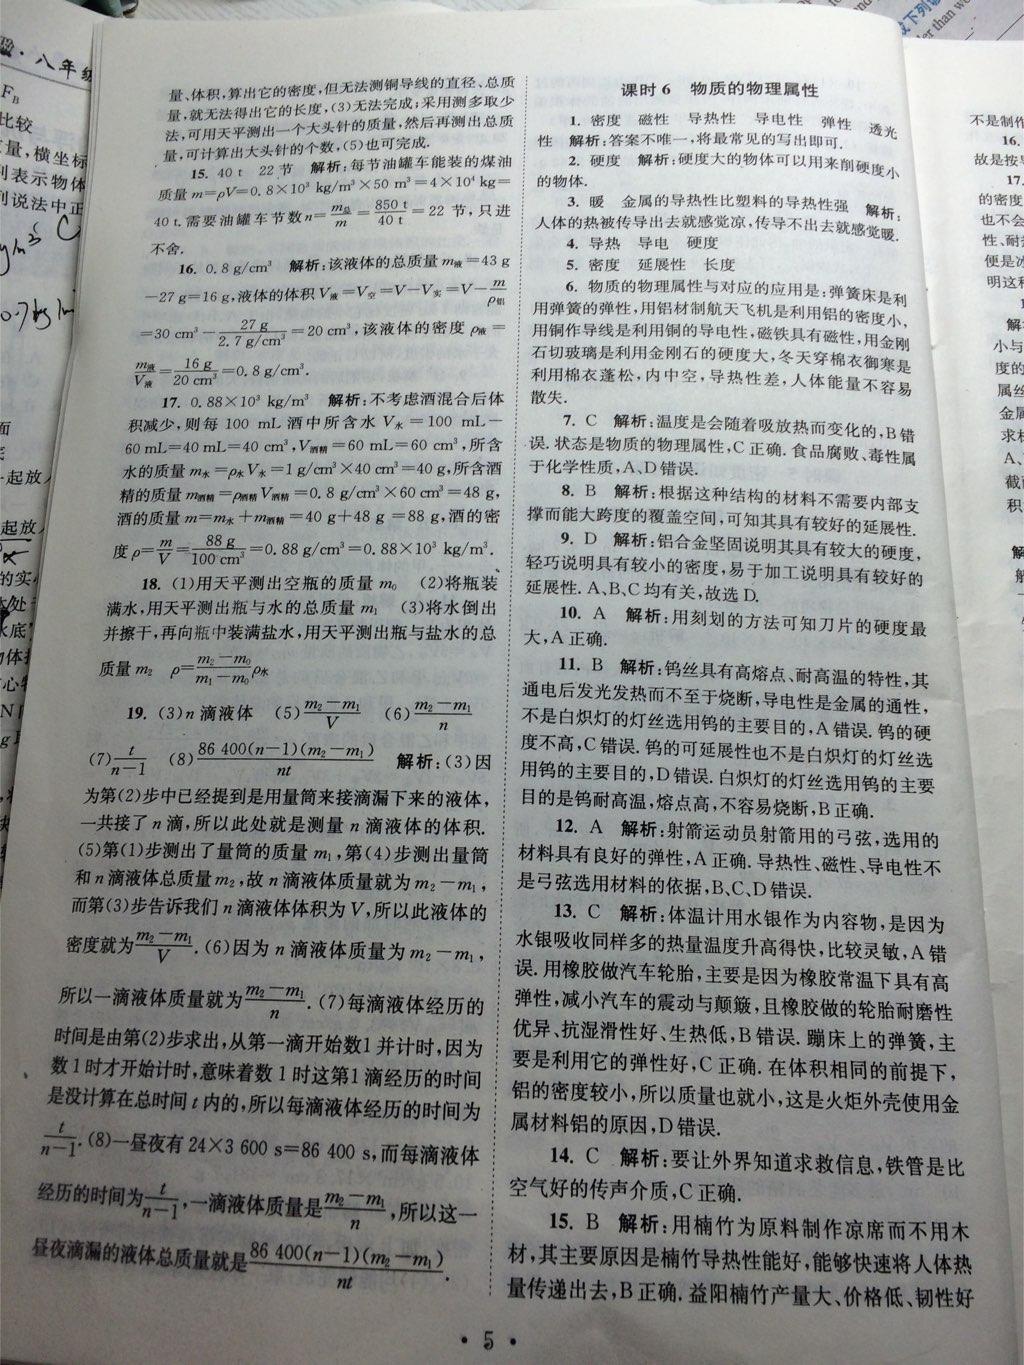 验·八年级
量、体积,算出它的密度,但无法测铜导线的直径、总质
量,就无法得出它的长度,(3)无法完成;采用测多取少
法,可用天平测出一个大头针的质量,然后再测出总质
量,可计算出大头针的个数,(5)也可完成.
15. 40 t 22 节 解析:每节油罐车能装的煤油
质量 m=ρV=0.8×10³ kg/m³×50 m³=4×10⁴ kg=
40 t.需要油罐车节数 n=m总/m=850 t/40 t=22 节,只进
不舍.
16. 0.8 g/cm³ 解析:该液体的总质量 m液=43 g
-27 g=16 g,液体的体积 V液=V空=V-V实=V-m/ρ铝
=30 cm³-27 g/2.7 g/cm³=20 cm³,该液体的密度 ρ液=
m液/V液=16 g/20 cm³=0.8 g/cm³.
17. 0.88×10³ kg/m³ 解析:不考虑酒混合后体
积减少,则每 100 mL 酒中所含水 V水=100 mL-
60 mL=40 mL=40 cm³,V酒精=60 mL=60 cm³,所含
水的质量 m水=ρ水V水=1 g/cm³×40 cm³=40 g,所含酒
精的质量 m酒精=ρ酒精V酒精=0.8 g/cm³×60 cm³=48 g,
酒的质量 m=m水+m酒精=40 g+48 g=88 g,酒的密
度 ρ=m/V=88 g/100 cm³=0.88 g/cm³=0.88×10³ kg/m³.
18. (1)用天平测出空瓶的质量 m₀ (2)将瓶装
满水,用天平测出瓶与水的总质量 m₁ (3)将水倒出
并擦干,再向瓶中装满盐水,用天平测出瓶与盐水的总
质量 m₂ ρ=(m₂-m₀)/(m₁-m₀)ρ水
19. (3)n 滴液体 (5)(m₂-m₁)/V (6)(m₂-m₁)/n
(7)t/(n-1) (8)86 400(n-1)(m₂-m₁)/nt 解析:(3)因
为第(2)步中已经提到是用量筒来接滴漏下来的液体,
一共接了 n 滴,所以此处就是测量 n 滴液体的体积.
(5)第(1)步测出了量筒的质量 m₁,第(4)步测出量筒
和 n 滴液体总质量 m₂,故 n 滴液体质量就为 m₂-m₁,
而第(3)步告诉我们 n 滴液体体积为 V,所以此液体的
密度就为(m₂-m₁)/V.(6)因为 n 滴液体质量为 m₂-m₁,
所以一滴液体质量就为(m₂-m₁)/n.(7)每滴液体经历的
时间是由第(2)步求出,从第一滴开始数1并计时,因为
数 1 时才开始计时,意味着数 1 时这第1 滴经历的时间
是没计算在总时间 t 内的,所以每滴液体经历的时间为
t/(n-1).(8)一昼夜有 24×3 600 s=86 400 s,而每滴液体
经历的时间为t/(n-1),一滴液体质量是(m₂-m₁)/n,所以这一
昼夜滴漏的液体总质量就是86 400(n-1)(m₂-m₁)/nt.
课时 6 物质的物理属性
1. 密度 磁性 导热性 导电性 弹性 透光
性 解析:答案不唯一,将最常见的写出即可.
2. 硬度 解析:硬度大的物体可以用来削硬度小
的物体.
3. 暖 金属的导热性比塑料的导热性强 解析:
人体的热被传导出去就感觉凉,传导不出去就感觉暖.
4. 导热 导电 硬度
5. 密度 延展性 长度
6. 物质的物理属性与对应的应用是:弹簧床是利
用弹簧的弹性,用铝材制航天飞机是利用铝的密度小,
用铜作导线是利用铜的导电性,磁铁具有磁性,用金刚
石切玻璃是利用金刚石的硬度大,冬天穿棉衣御寒是
利用棉衣蓬松,内中空,导热性差,人体能量不容易
散失.
7. C 解析:温度是会随着吸放热而变化的,B 错
误.状态是物质的物理属性,C 正确.食品腐败、毒性属
于化学性质,A、D 错误.
8. B 解析:根据这种结构的材料不需要内部支
撑而能大跨度的覆盖空间,可知其具有较好的延展性.
9. D 解析:铝合金坚固说明其具有较大的硬度,
轻巧说明具有较小的密度,易于加工说明具有较好的
延展性. A、B、C 均有关,故选 D.
10. A 解析:用刻划的方法可知刀片的硬度最
大,A 正确.
11. B 解析:钨丝具有高熔点、耐高温的特性,其
通电后发光发热而不至于烧断,导电性是金属的通性,
不是白炽灯的灯丝选用钨的主要目的,A 错误.钨的硬
度不高,C 错误.钨的可延展性也不是白炽灯的灯丝选
用钨的主要目的,D 错误.白炽灯的灯丝选用钨的主要
目的是钨耐高温,熔点高,不容易烧断,B 正确.
12. A 解析:射箭运动员射箭用的弓弦,选用的
材料具有良好的弹性,A 正确.导热性、磁性、导电性不
是弓弦选用材料的依据,B、C、D 错误.
13. C 解析:体温计用水银作为内容物,是因为
水银吸收同样多的热量温度升高得快,比较灵敏,A 错
误.用橡胶做汽车轮胎,主要是因为橡胶常温下具有高
弹性,减小汽车的震动与颠簸,且橡胶做的轮胎耐磨性
优异、抗湿滑性好、生热低,B 错误.蹦床上的弹簧,主
要是利用它的弹性好,C 正确.在体积相同的前提下,
铝的密度较小,所以质量也就小,这是火炬外壳使用金
属材料铝的原因,D 错误.
14. C 解析:要让外界知道求救信息,铁管是比
空气好的传声介质,C 正确.
15. B 解析:用楠竹为原料制作凉席而不用木
材,其主要原因是楠竹导热性能好,能够快速将人体热
量传递出去,B 正确.益阳楠竹产量大、价格低、韧性好
• 5 •